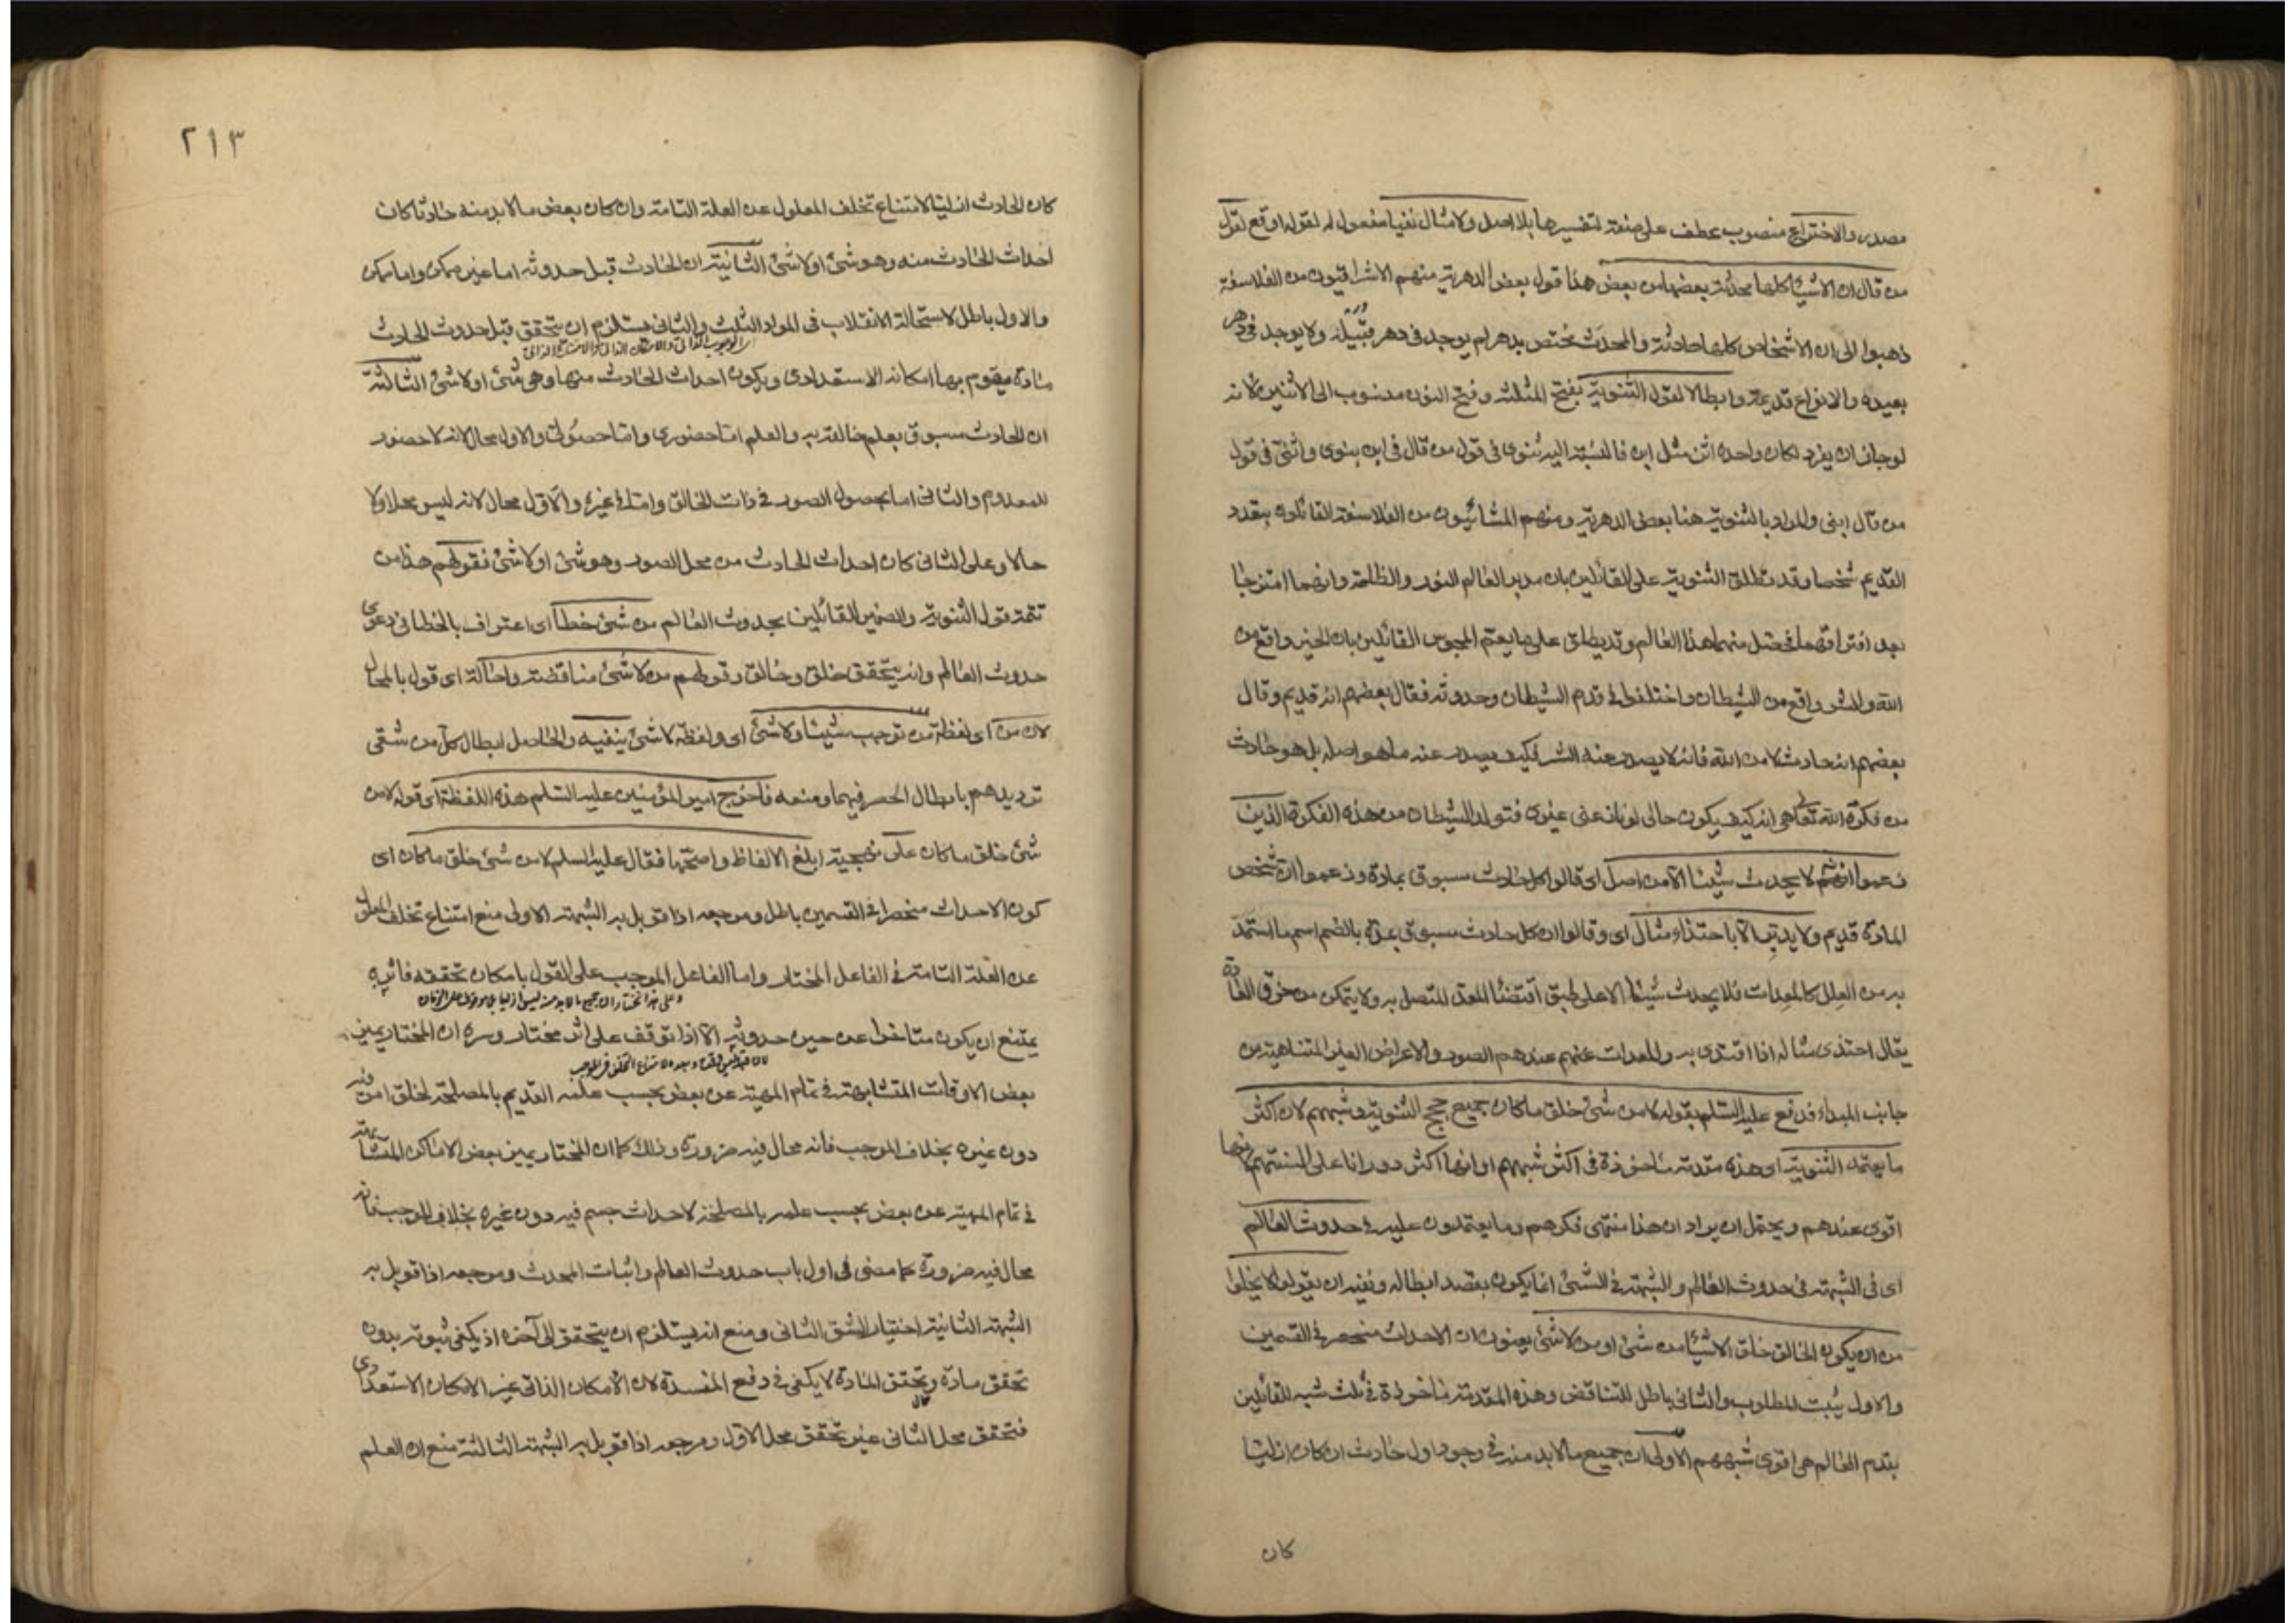 مصدر والاختراع منصوب عطف على صنعة لتفسيرها بلا اصل ولا مثال نفيا مفعول له لقوله اوقع لقول
من قال ان الاشياء كلها محدثة بعضها من بعض هذا قول بعض الدهرية منهم الاشراقيون من الفلاسفة
ذهبوا الى ان الاشخاص كلها حادثة والمحدث مختص بدهر لم يوجد في دهر قبيله ولا يوجد في دهر
بعيده والانواع قديمة وابطالا لقول الثنوية بفتح المثلثة وفتح النون منسوب الى الاثنين لانه
لوجاز ان يفرد لكان واحده اثن مثل ابن فالنسبة اليه ثنوي في قول من قال في ابن بنوي واثني في قول
من قال ابني والمراد بالثنوية هنا بعض الدهرية ومنهم المشائيون من الفلاسفة القائلون بتعدد
القديم شخصا وقد تطلق الثنوية على القائلين بان مدبر العالم النور والظلمة وانهما امتزجا
بعد افتراقهما فحصل منهما هذا العالم وقد يطلق على ما يعم المجوس القائلين بان الخير واقع من
الله والشر واقع من الشيطان واختلفوا في قدم الشيطان وحدوثه فقال بعضهم انه قديم وقال
بعضهم انه حادث لا من الله فانه لا يصدر عنه الشر فكيف يصدر عنه ما هو اصله بل هو حادث
من فكرة الله تعالى هي انه كيف يكون حالي لو نازعني غيري فتولد الشيطان من هذه الفكرة الذين
زعموا انه لا يحدث شيئا الا من اصل اي قالوا كل حادث مسبوق بمادة وزعموا ان شخص
المادة قديم ولا يدبر الا باحتذاء مثال اي وقالوا ان كل حادث مسبوق بمدة بالضم اسم ما استمد
به من العلل كالمعدات فلا يحدث شيئا الا على طبق اقتضاء المعد المتصل به ولا يتمكن من خرق العادة
يقال احتذى مثاله اذا اقتدى به والمعدات عندهم الصور والاعراض الغير المتناهية من
جانب المبداء فدفع عليه السلم بقوله لا من شئ خلق ما كان جميع حجج الثنوية وشبههم لان اكثر
ما يعتمد الثنوية اي هذه مقدمة ماخوذة في اكثر شبههم او انها اكثر دورانا على السنتهم لانها
اقوى عندهم ويحتمل ان يراد ان هذا منتهى فكرهم وما يعتمدون عليه في حدوث العالم
اي في الشبهة في حدوث العالم والشبهة في الشئ انما يكون بقصد ابطاله ونفيه ان يقولوا لا يخلوا
من ان يكون الخالق خلق الاشياء من شئ او من لا شئ يعنون ان الاحداث منحصر في القسمين
والاول يثبت المطلوب والثاني باطل للتناقض وهذه المقدمة ماخوذة في ثلث شبه للقائلين
بقدم العالم هي اقوى شبههم الاولى ان جميع ما لا بد منه في وجود اول حادث ان كان ازليا
كان
٢١٣
كان الحادث ازليا لامتناع تخلف المعلول عن العلة التامة وان كان بعض ما لا بد منه حادثا كان
احداث الحادث منه وهو شئ او لا شئ الثانية ان الحادث قبل حدوثه اما غير ممكن واما ممكن
والاول باطل لاستحالة الانقلاب في المواد الثلث والثاني يستلزم ان يتحقق قبل حدوث الحادث
الوجوب الذاتي والامكان الذاتي والامتناع الذاتي
مادة يقوم بها امكانه الاستعدادي ويكون احداث الحادث منها وهي شئ او لا شئ الثالثة
ان الحادث مسبوق بعلم خالقه به والعلم اما حضوري واما حصولي والاول محال لانه لا حضور
للمعدوم والثاني اما بحصول الصور في ذات الخالق واما في غيره والاول محال لانه ليس محلا ولا
حالا وعلى الثاني كان احداث الحادث من محل الصور وهو شئ او لا شئ فقولهم هذا من
تتمة قول الثنوية والضمير للقائلين بحدوث العالم من شئ خطأ اي اعتراف بالخطا في دعوى
حدوث العالم وانه يتحقق خلق وخالق وقولهم من لا شئ مناقضة واحالة اي قول بالمحال
لان من اي لفظة من توجب شيئا ولا شئ اي ولفظة لا شئ ينفيه والحاصل ابطال كل من شقي
ترديدهم بابطال الحصر فيهما ومنعه فاخرج امير المؤمنين عليه السلم هذه اللفظة اي قوله لا من
شئ خلق ما كان على نهجية ابلغ الالفاظ واصحها فقال عليه السلم لا من شئ خلق ما كان اي
كون الاحداث منحصرا في القسمين باطل ومرجعه اذا قوبل به الشبهة الاولى منع امتناع تخلف المعلول
عن العلة التامة في الفاعل المختار واما الفاعل الموجب على القول بامكان تحققه فاثره
يمتنع ان يكون متاخرا عن حين حدوثه الا اذا توقف على اثر مختار وسره ان المختار يميز
بعض الاوقات المتشابهة في تمام المهية عن بعض بحسب علمه القديم بالمصلحة لخلق امر فيه
دون غيره بخلاف الموجب فانه محال فيه ضرورة وذلك كما ان المختار يميز بعض الاماكن المتشابهة
في تمام المهية عن بعض بحسب علمه بالمصلحة لاحداث جسم فيه دون غيره بخلاف الموجب فانه
محال فيه ضرورة كما مضى في اول باب حدوث العالم واثبات المحدث ومرجعه اذا قوبل به
الشبهة الثانية اختيار الشق الثاني ومنع انه يستلزم ان يتحقق الى آخره اذ يكفي ثبوته بدون
تحقق مادة وتحقق المادة لا يكفي في دفع المفسدة لان الامكان الذاتي غير الامكان الاستعدادي
فتحقق محل الثاني غير تحقق محل الاول ومرجعه اذا قوبل به الشبهة الثالثة منع ان العلم